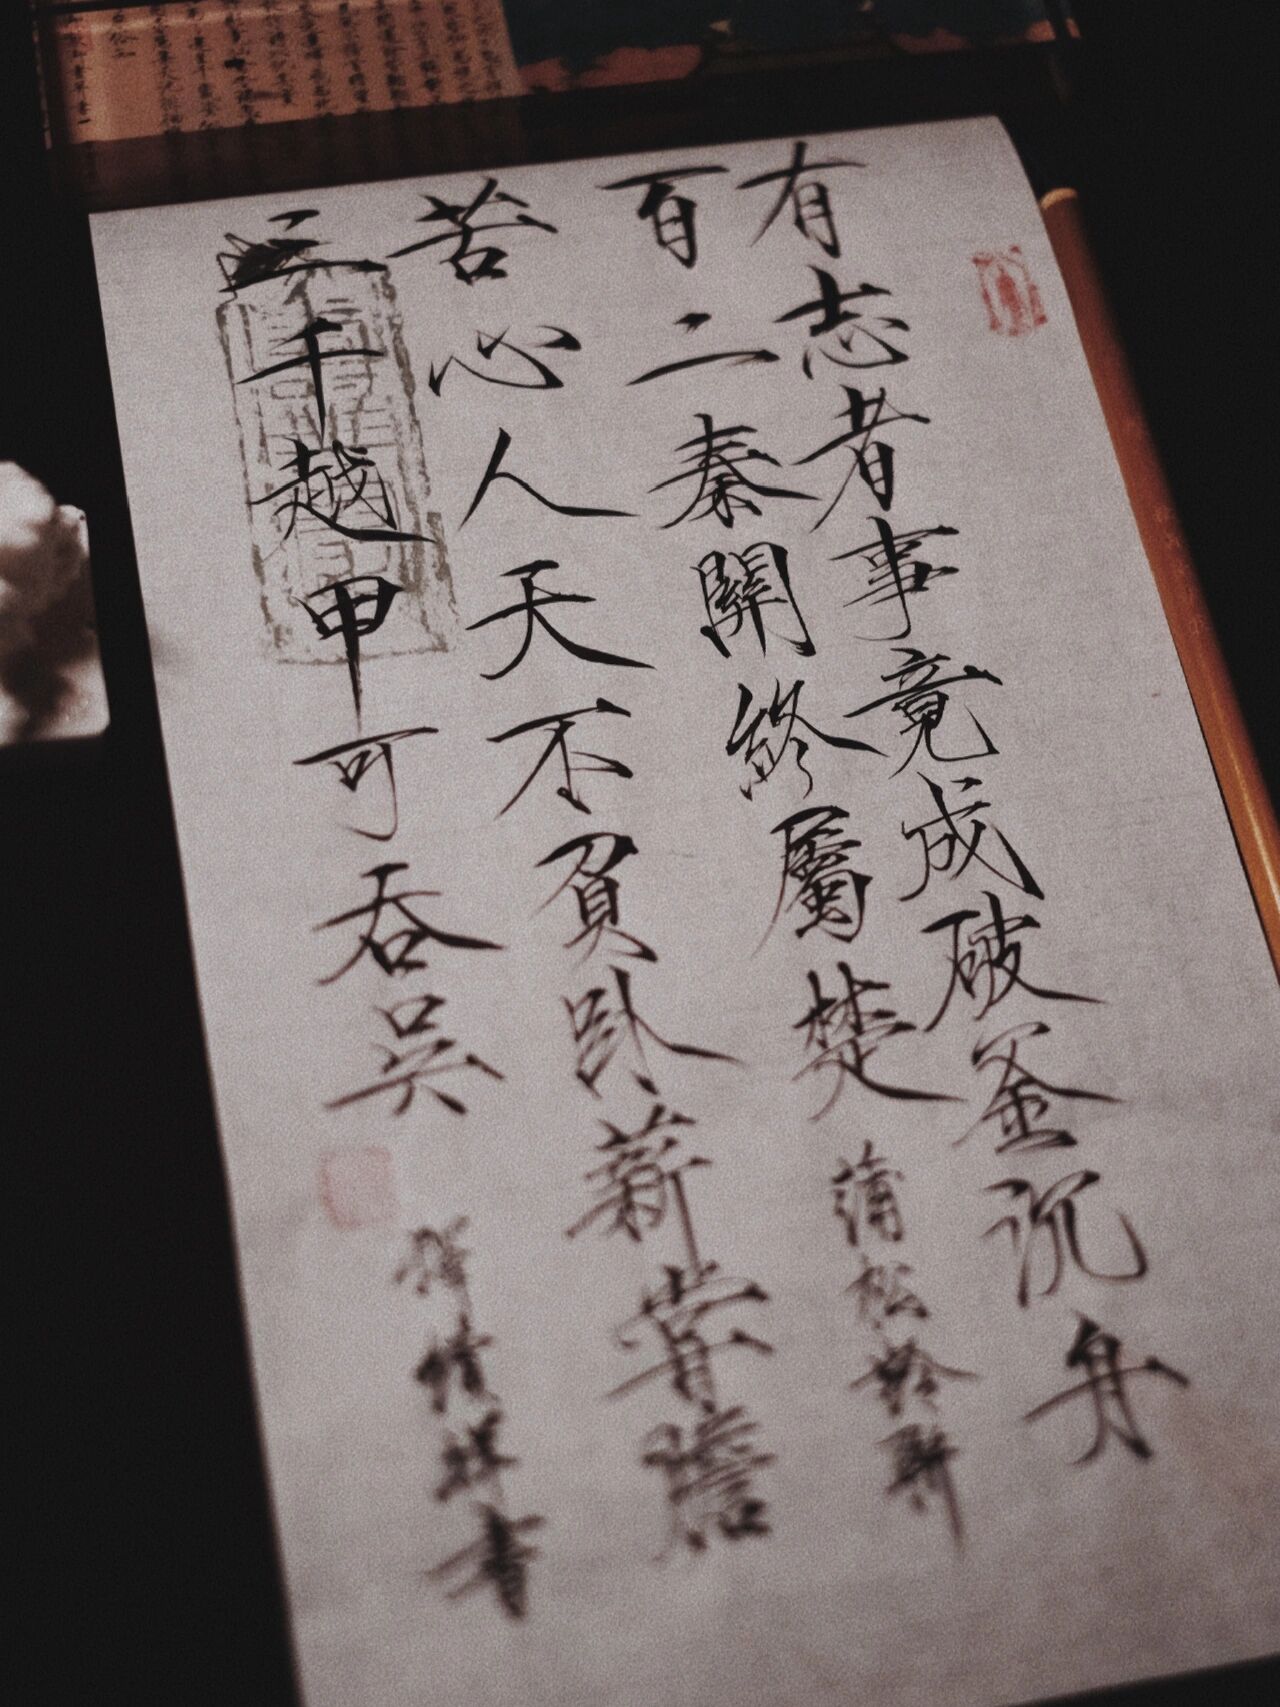 有志者事竟成破釜沉舟
百二秦關終屬楚 蒲松齡聯
苦心人天不負卧薪嘗膽
三千越甲可吞吳 書